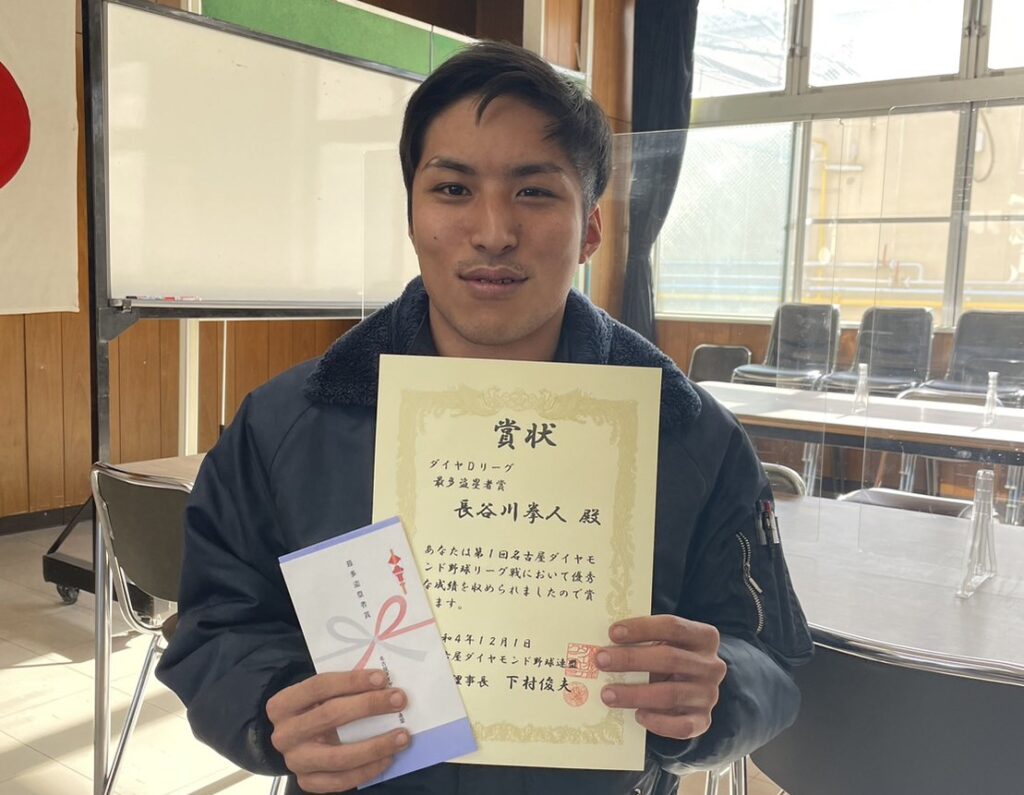 賞状
ダイヤDリーグ
最多盗塁者賞
長谷川拳人 殿
あなたは第1回名古屋ダイヤモ
ンド野球リーグ戦において優秀
な成績を収められましたので賞
ます。
和4年12月1日
古屋ダイヤモンド野球連盟
理事長 下村俊夫
最多盗塁者賞